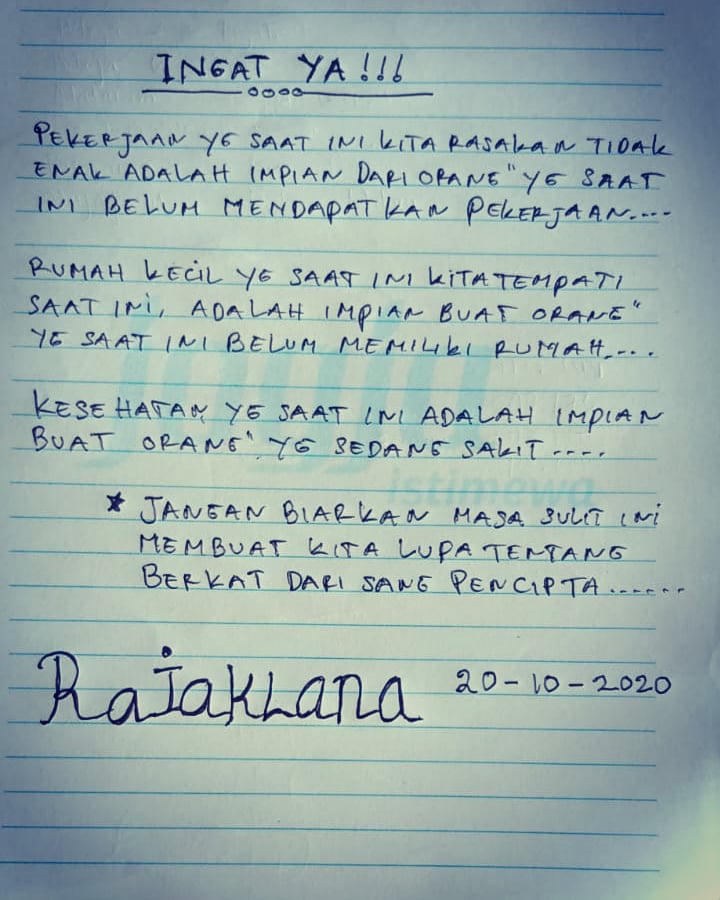 INGAT YA!!!
PEKERJAAN YG SAAT INI KITA RASAKAN TIDAK
ENAK ADALAH IMPIAN DARI ORANG" YG SAAT
INI BELUM MENDAPATKAN PEKERJAAN....
RUMAH KECIL YG SAAT INI KITA TEMPATI
SAAT INI, ADALAH IMPIAN BUAT ORANG"
YG SAAT INI BELUM MEMILIKI RUMAH....
KESEHATAN YG SAAT INI ADALAH IMPIAN
BUAT ORANG" YG SEDANG SAKIT....
* JANGAN BIARKAN MASA SULIT INI
MEMBUAT KITA LUPA TENTANG
BERKAT DARI SANG PENCIPTA......
RajaKLana 20-10-2020
istimewa